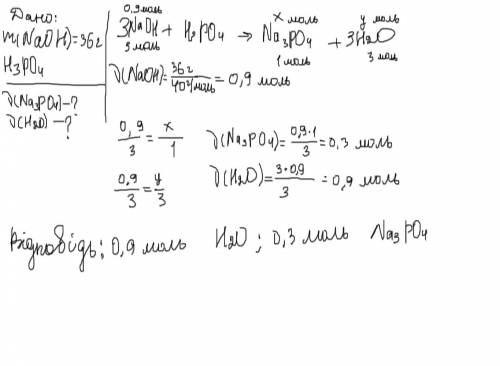 Дано:
m(NaOH)=36г
H₃PO₄
ν(Na₃PO₄)-?
ν(H₂O)-?
0,9моль x моль y моль
3NaOH + H₃PO₄ → Na₃PO₄ + 3H₂O
3 моль 1 моль 3 моль
ν(NaOH)= 36г / 40г/моль = 0,9 моль
0,9/3 = x/1 ν(Na₃PO₄)= 0,9·1/3 = 0,3 моль
0,9/3 = y/3 ν(H₂O)= 3·0,9/3 = 0,9 моль
Відповідь: 0,9 моль H₂O ; 0,3 моль Na₃PO₄